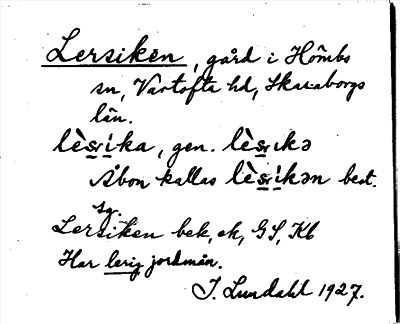 Lersiken, gård i Hömbs
sn, Vartofta hd, Skaraborgs
län.
lès̲i̲ka, gen. lès̲ıkə
Åbon kallas lès̲i̲kən best.
sg.
Lersiken bek, ek, GS, Kb
Har lerig jordmån.
I. Lundahl 1927.